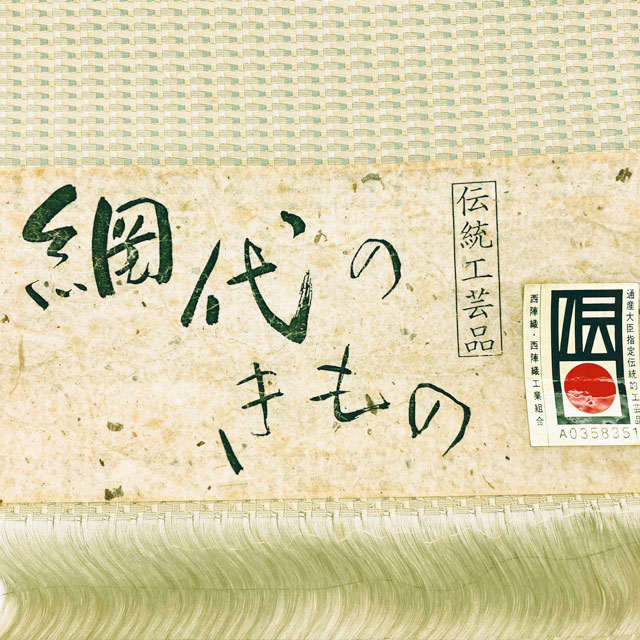 網代の
きもの
伝統工芸品
通産大臣指定伝統的工芸品
西陣織・西陣織工業組合
A0358351